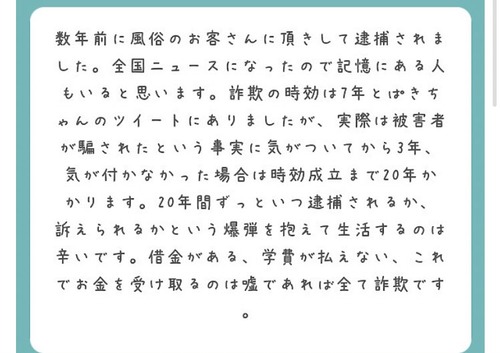 数年前に風俗のお客さんに頂きして逮捕されま
した。全国ニュースになったので記憶にある人
もいると思います。詐欺の時効は7年とぱきち
ゃんのツイートにありましたが、実際は被害者
が騙されたという事実に気がついてから3年、
気が付かなかった場合は時効成立まで20年か
かります。20年間ずっといつ逮捕されるか、
訴えられるかという爆弾を抱えて生活するのは
辛いです。借金がある、学費が払えない、これ
でお金を受け取るのは嘘であれば全て詐欺です
。